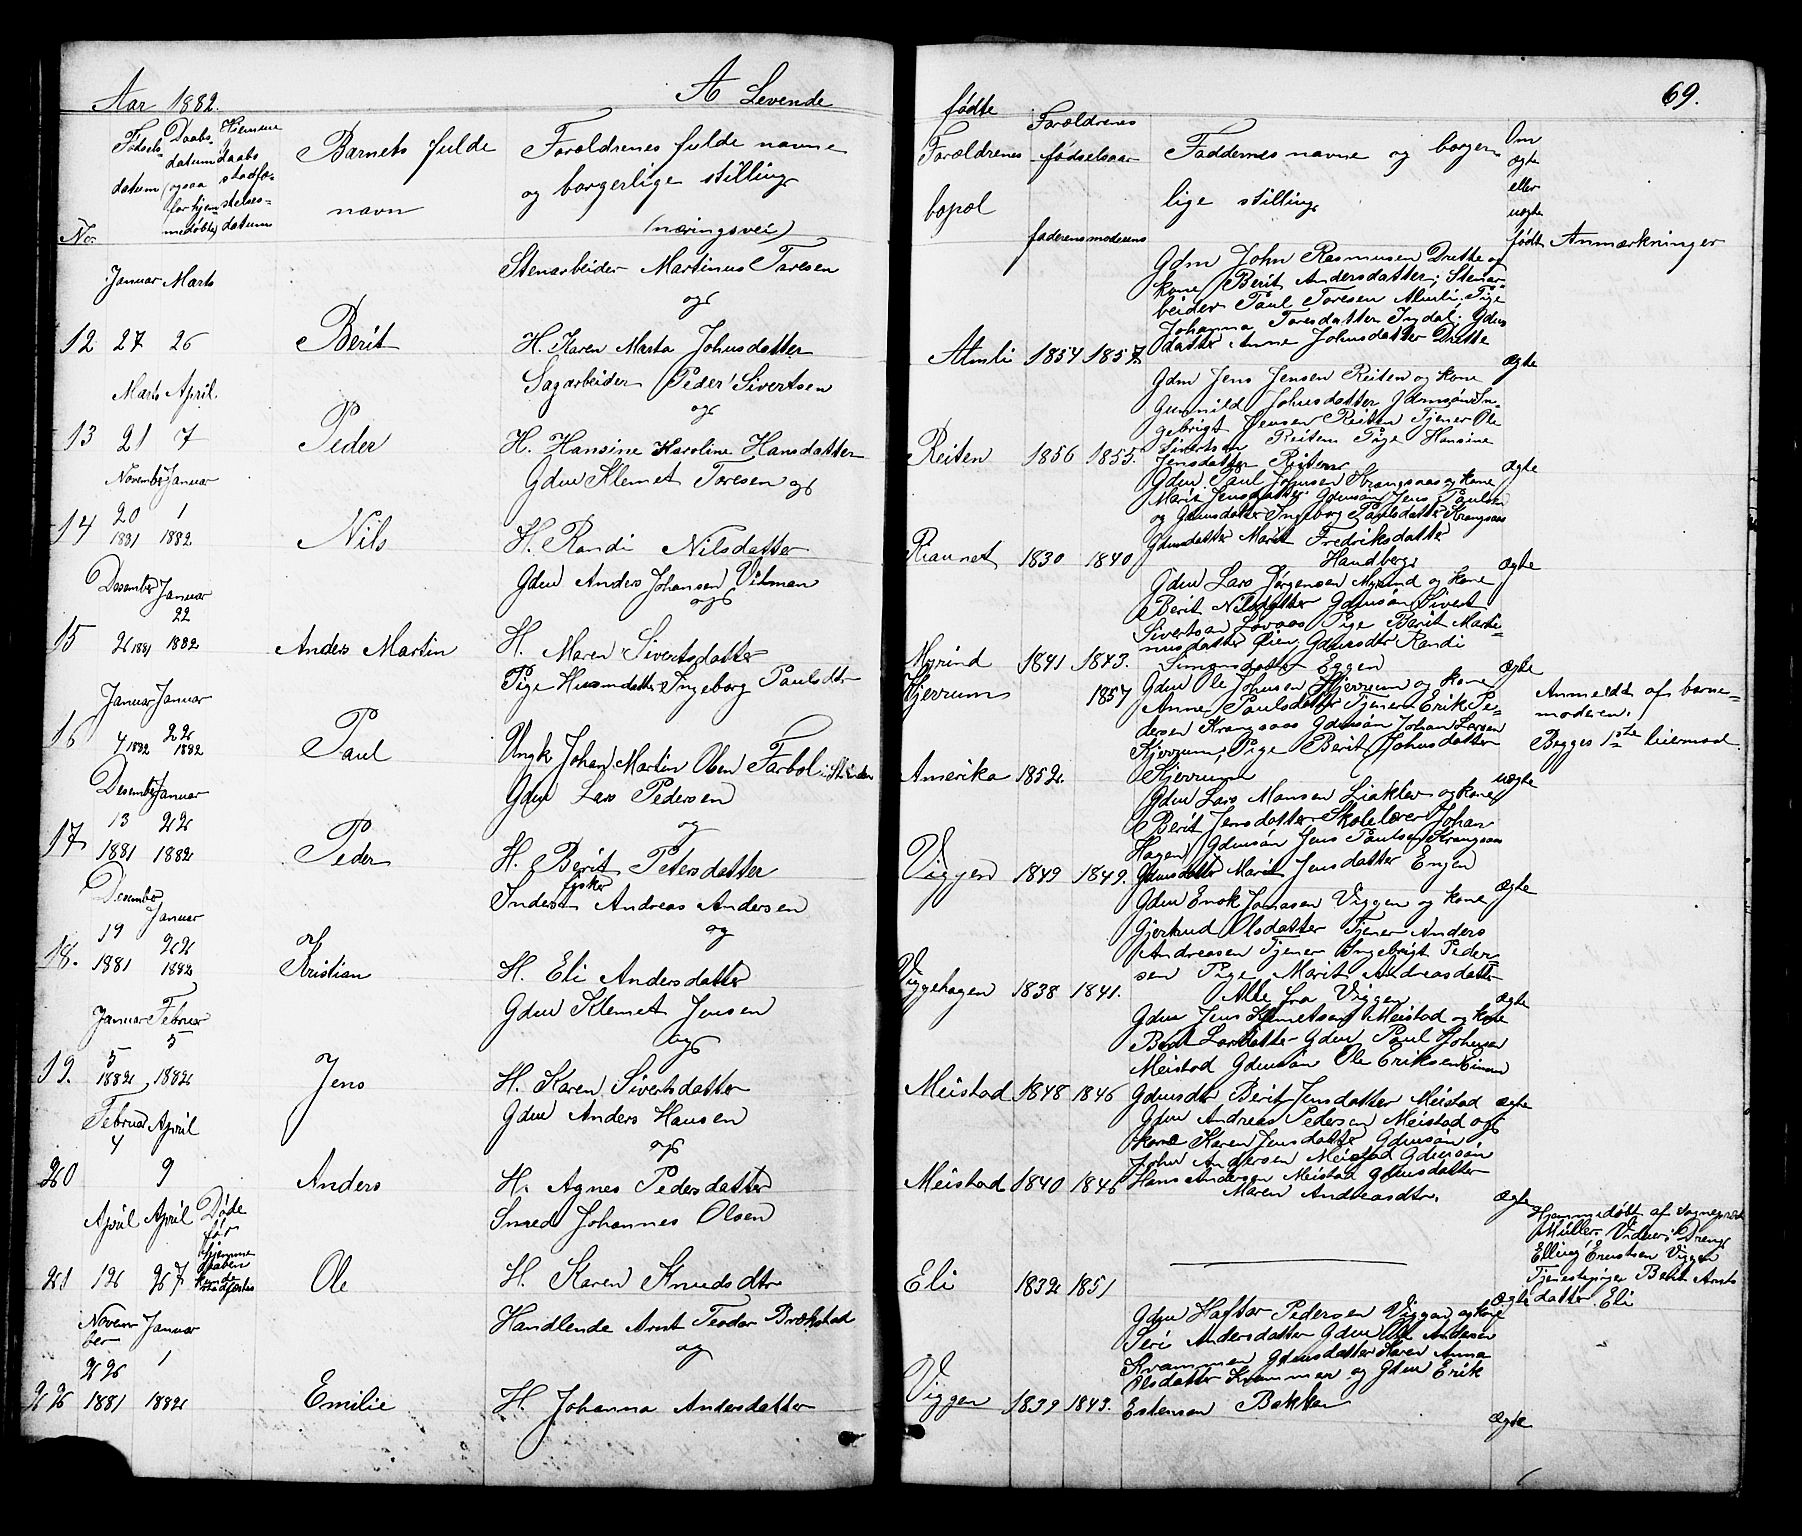 Aar 1882.
A Levende
No.
Fødsels
datum
Daabs
datum
(ogsaa
for hjem
medøbte)
Hjemme
daabs
stadfæ
stelses
datum
Barnets fulde
navn
Forældrenes fulde navne
og borgerlige stilling
(næringsvei)
Januar Marts
12 27 26
Berit
Stenarbeider Martinus Toresen
og
H. Karen Marta Johnsdatter
Marts April.
13 21 7
Peder
Sagarbeider Peder Sivertsen
og
H. Hansine Karoline Hansdatter
November Januar
14 20 1
1881 1882
Nils
Gdm Klemet Toresen og
H. Randi Nilsdatter
Desember Januar
22
15 26 1881 1882
Anders Martin
Gdm Anders Johansen Vilman
og
H. Maren Sivertsdatter
Januar Januar
16 4 1882 22 1882
Paul
Pige Husmdatter Ingeborg Paulsdtr
Ungk Johan Martin Olsen
Desember Januar
17 13 22
1881 1882
Peder
Gdm Lars Pedersen
og
H. Berit Petersdatter
Desember
Januar
18. 19 22
1881 1882
Kristian
Inderst fisker Andreas Andersen
og
H. Eli Andersdatter
Januar Februar
19. 5 5
1882 1882
Jens
Gdm Klemet Jensen
og
H. Karen Sivertsdatter
Februar April
20 4 9
Anders
Gdm Anders Hansen
og
H. Agnes Pedersdatter
April April Døde
før
hjemme
daaben
kunde
stadfjestes
21 12 27
Ole
Smed Johannes Olsen
H. Karen Knudsdtr
Novem
ber Januar
22 22 1
1881 1882
Emilie
Handlende Arnt Teodor Brækstad
og
H. Johanna Andersdatter
69.
fødte
Forældrenes
bopæl
Forældrenes
fødselsaar
faderens moderens
Faddernes navne og borger
lige stilling
Om
ægte
eller
uægte
født
Anmærkninger
Almli 1854 1857
Gdm John Rasmusen Drette og
kone Berit Andersdatter; Stenar-
beider Paul Toresen Almli; Pige
Johanna Toresdatter Indal; Gdms
datter Anne Johnsdatter Drette
ægte
Reiten 1856 1855.
Gdm Jens Jensen Reiten og kone
Gunnild Johnsdatter, Gdmsøn In-
gebrigt Jensen Reiten Tjener Ole
Sivertsen Reiten Pige Hansine
Jensdatter Reiten
ægte
1830 1840
Gdm. Paul Johnsen Krangsaas og kone
Marit Jensdatter. Gdmsøn Jens Paulsen
og Gdmsdatter Ingeborg Paulsdatter Krangsaas
Gdmsdatter Marit Fredriksdatter
Handberg
ægte
Myrind 1841 1843.
Gdm Lars Jørgensen Myrind og kone
Berit Nilsdatter Gdmsøn Sivert
Sivertsen Lovaas Pige Berit Marti-
nusdatter Øien, Gdmsdtr Randi
Simonsdatter Eggen
ægte
Hjerrum 1857
Amerika 1852
Gdm Ole Johnsen Hjerrum og kone
Anne Paulsdatter Tjener Erik Pe-
dersen Krangsaas Gdmsøn Johan Larsen
Hjerrum, Pige Berit Johnsdatter
Hjerrum
uægte
Anmeldt af barne-
moderen.
Begges 1ste leiermaal
Viggen 1849 1849.
Gdm Lars Monsen Liaklev og kone
Berit Jensdatter Skolelærer Johan
Hagen Gdmsøn Jens Paulsen Krangsaas
Gdmsdatter Marit Jensdatter Engen
ægte
Viggehagen 1838 1841.
Gdm Enok Jonasen Viggen og kone
Gjertrud Olsdatter Tjener Anders
Andreasen Tjener Ingebrigt Peder-
sen Pige Marit Andreasdatter
Alle fra Viggen
ægte
Meistad 1848 1846
Gdm Jens Klemetsen Meistad og kone
Berit Larsdatter Gdm Paul Johnsen
Meistad Gdmsøn Ole Eriksen
Gdmsdtr Berit Jensdatter Meistad
ægte
Meistad 1840 1846
Gdm Andreas Pedersen Meistad og
kone Karen Jensdatter Gdmsøn
John Andersen Meistad Gdmsøn
Hans Andersen Meistad Gdmsdatter
Maren Andreasdtr.
ægte
Eli 1832 1851
ægte
Hjemmedøbt af Sogneprest
Müller. Vidner: Dreng
Elling Enoksen Viggen
Tjenestepige Berit Arnts
datter. Eli
Viggen 1839 1843.
Gdm Haftor Pedersen Viggen og kone
Seri Andersdatter Gdm Ole Andersen
Kvammen Gdmsdatter Karen Anna
Olsdatter Kvammen og Gdm Erik
Estensen Bakken
ægte